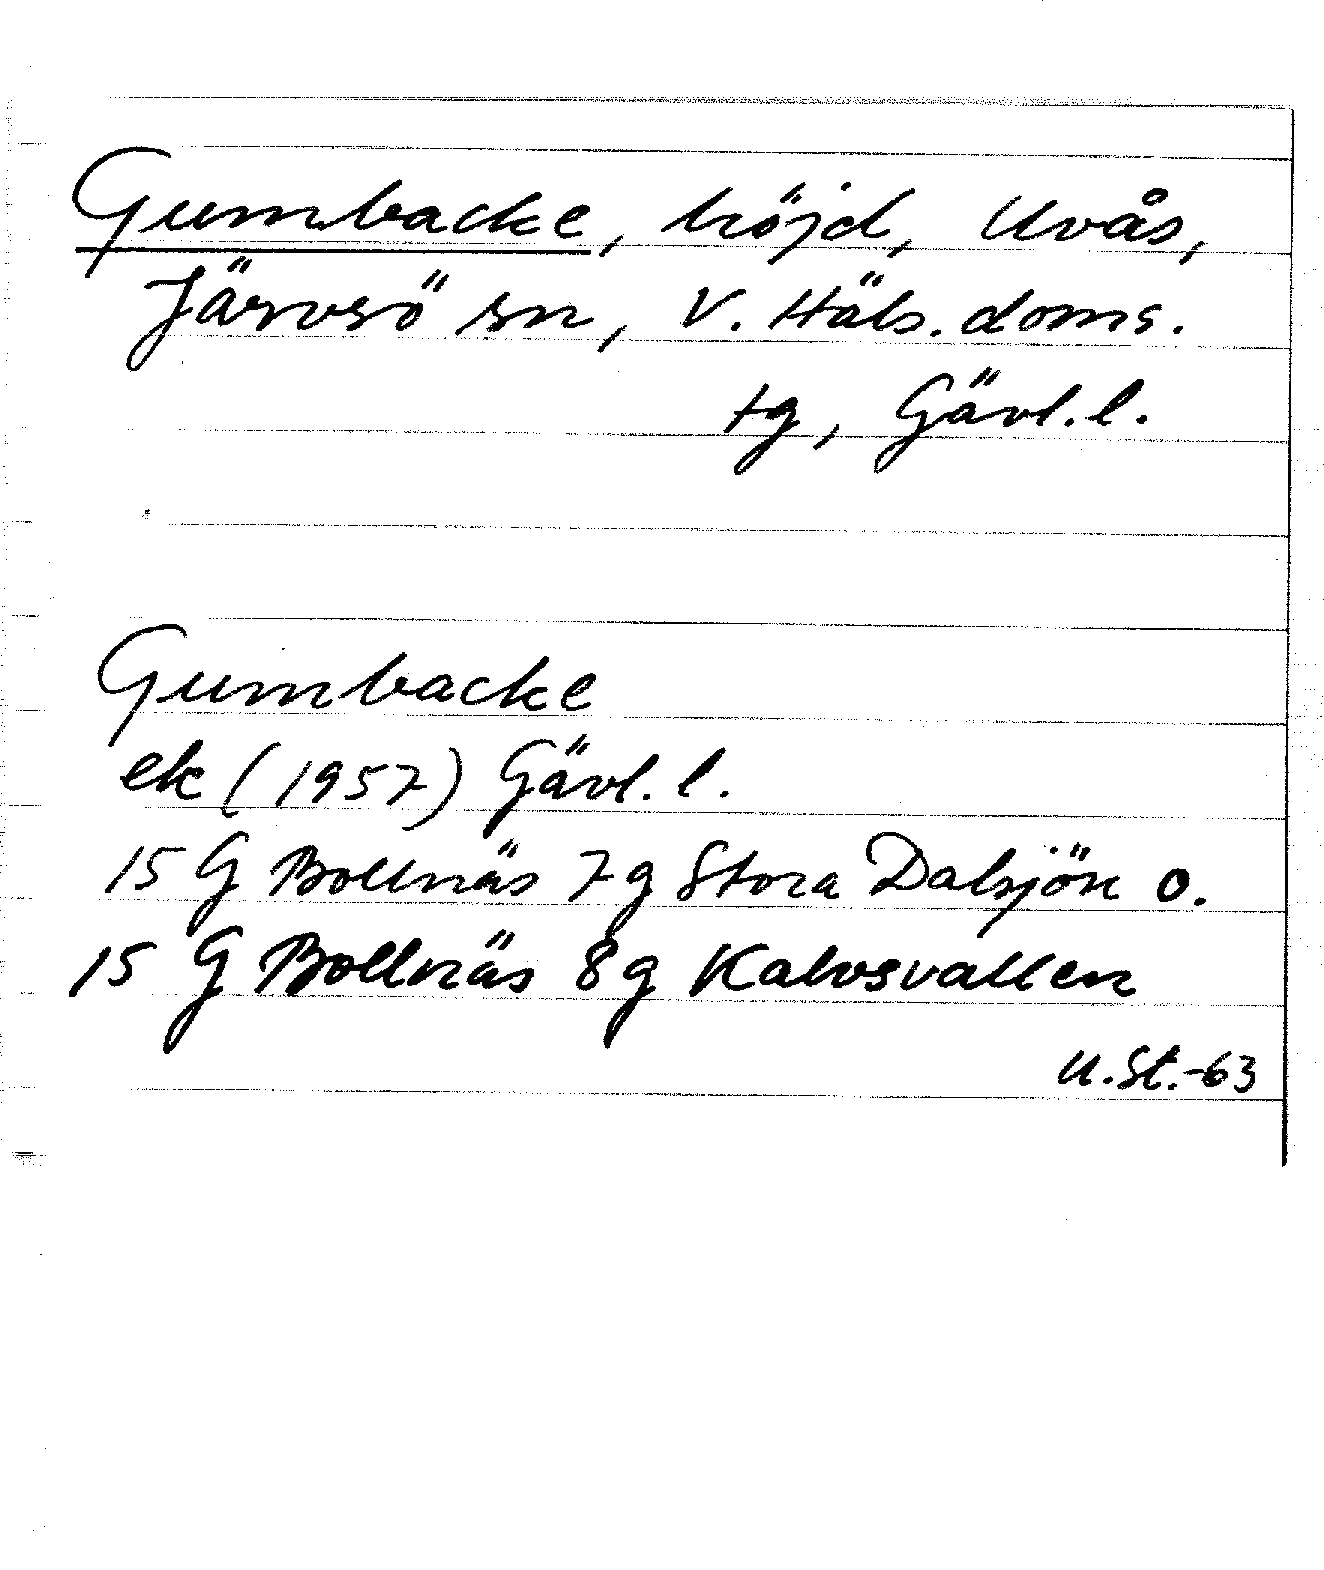 Gumbacke, höjd, Uvås,
Järvsö sn, V. Häls. doms.
tg, Gävl. l.
Gumbacke
ek (1957) Gävl. l.
15 G Bollnäs 7g Stora Dalsjön o.
15 G Bollnäs 8g Kalvsvallen
U. St.-63